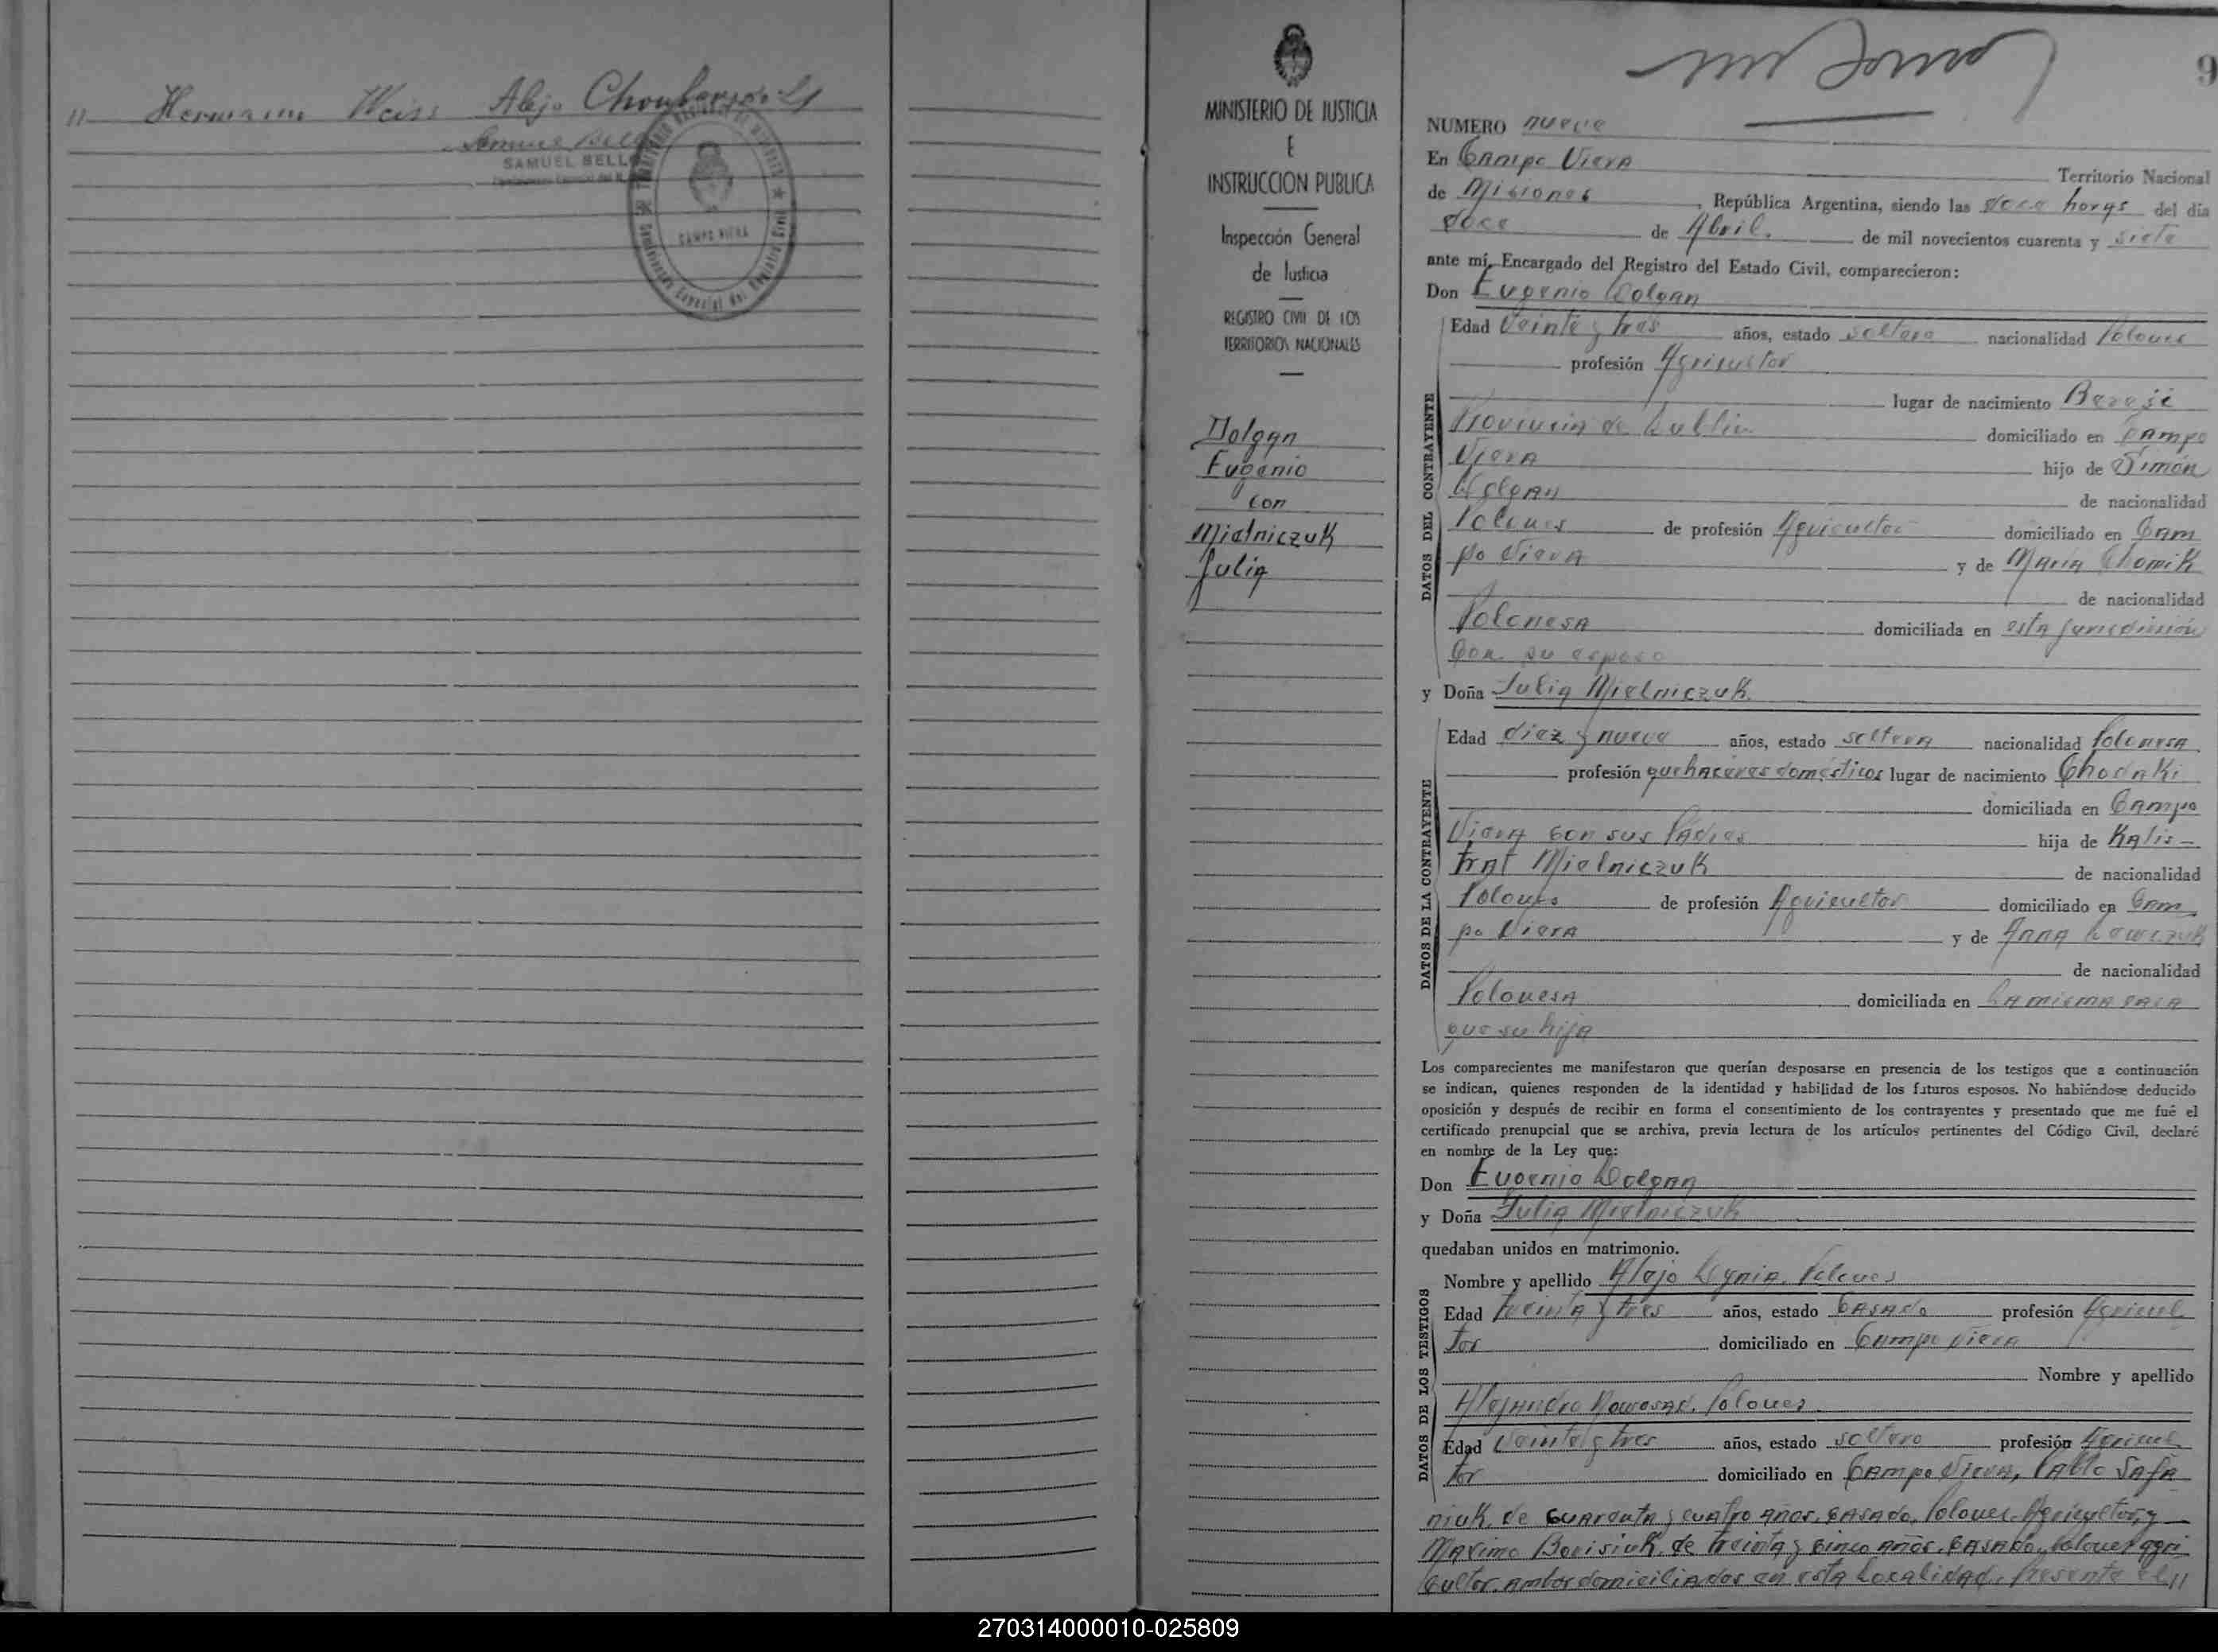 " Hermann Weiss Alejo
Samuel Bello
SAMUEL BELLO
CAMPO VIERA
MINISTERIO DE JUSTICIA
E
INSTRUCCION PUBLICA
Inspección General
de Justicia
REGISTRO CIVIL DE LOS
TERRITORIOS NACIONALES
Dolgan
Eugenio
con
Mielniczuk
Julia
9
NUMERO nueve
En Campo Viera Territorio Nacional
de Misiones, República Argentina, siendo las doce horas del día
doce de Abril. de mil novecientos cuarenta y siete
ante mí, Encargado del Registro del Estado Civil, comparecieron:
Don Eugenio Dolgan
DATOS DEL CONTRAYENTE
Edad Veinte y tres años, estado soltero nacionalidad Polones
profesión Agricultor
lugar de nacimiento
Provincia de Lublin domiciliado en Campo
Viera hijo de Simón
Dolgan de nacionalidad
Polones de profesión Agricultor domiciliado en Cam
po Viera y de Maria Chomik
de nacionalidad
Polonesa domiciliada en esta jurisdicción
con su esposo
y Doña Julia Mielniczuk.
DATOS DE LA CONTRAYENTE
Edad diez y nueve años, estado soltera nacionalidad Polonesa.
profesión quehaceres domésticos lugar de nacimiento Chodaki
domiciliada en Campo
Viera con sus Padres hija de Kalis-
trat Mielniczuk de nacionalidad
Polones de profesión Agricultor domiciliado en Cam
po Viera y de Anna
de nacionalidad
Polonesa domiciliada en La misma casa
que su hija
Los comparecientes me manifestaron que querían desposarse en presencia de los testigos que a continuación
se indican, quienes responden de la identidad y habilidad de los futuros esposos. No habiéndose deducido
oposición y después de recibir en forma el consentimiento de los contrayentes y presentado que me fué el
certificado prenupcial que se archiva, previa lectura de los artículos pertinentes del Código Civil, declaré
en nombre de la Ley que:
Don Eugenio Dolgan
y Doña Julia Mielniczuk
quedaban unidos en matrimonio.
DATOS DE LOS TESTIGOS
Nombre y apellido Alejo Polones
Edad treinta y tres años, estado casado profesión Agricul
tor domiciliado en Campo Viera
Nombre y apellido
Alejandro Nowosad. Polones.
Edad Veinte y tres años, estado soltero profesión Agricul
tor domiciliado en Campo Viera, Pablo Safa
niuk, de cuarenta y cuatro años, casado, Polones, Agricultor, y
Maximo Borisiuk, de treinta y cinco años, casado, Polones, agri
cultor, ambos domiciliados en esta Localidad. Presente el "
270314000010-025809